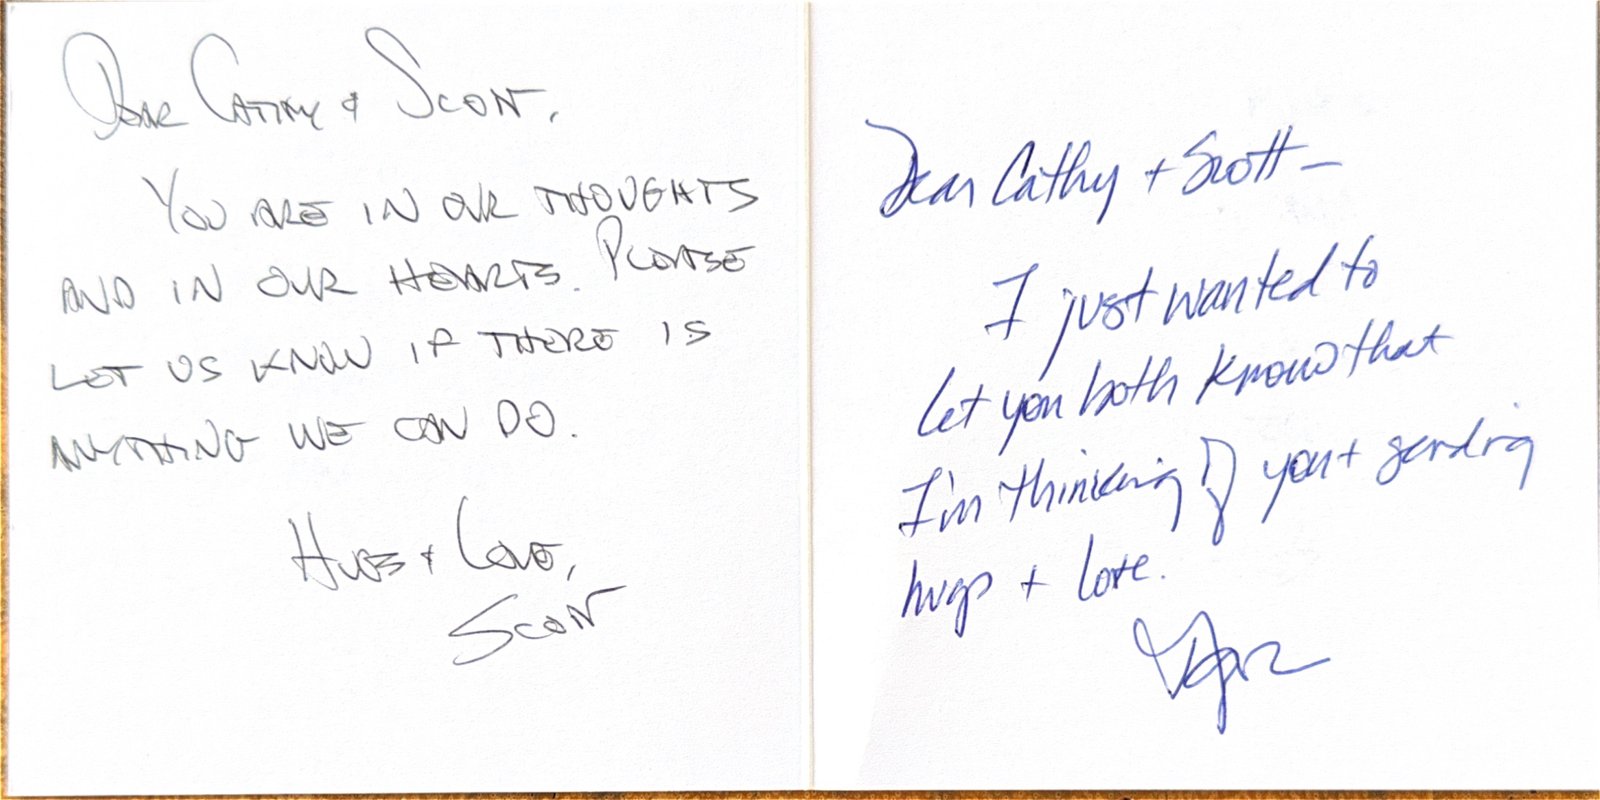 Dear Cathy & Scott,
You are in our thoughts
and in our hearts. Please
let us know if there is
anything we can do.
Hugs + Love,
Scott
Dear Cathy + Scott –
I just wanted to
let you both know that
I'm thinking of you + sending
hugs + love.